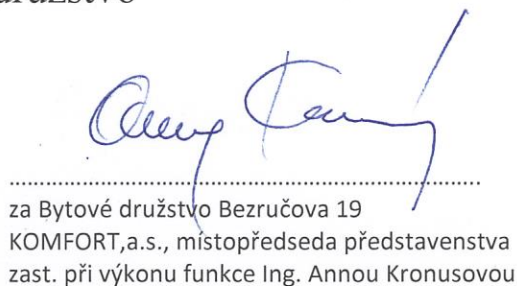 družstvo
................................................................................
za Bytové družstvo Bezručova 19
KOMFORT,a.s., místopředseda představenstva
zast. při výkonu funkce Ing. Annou Kronusovou